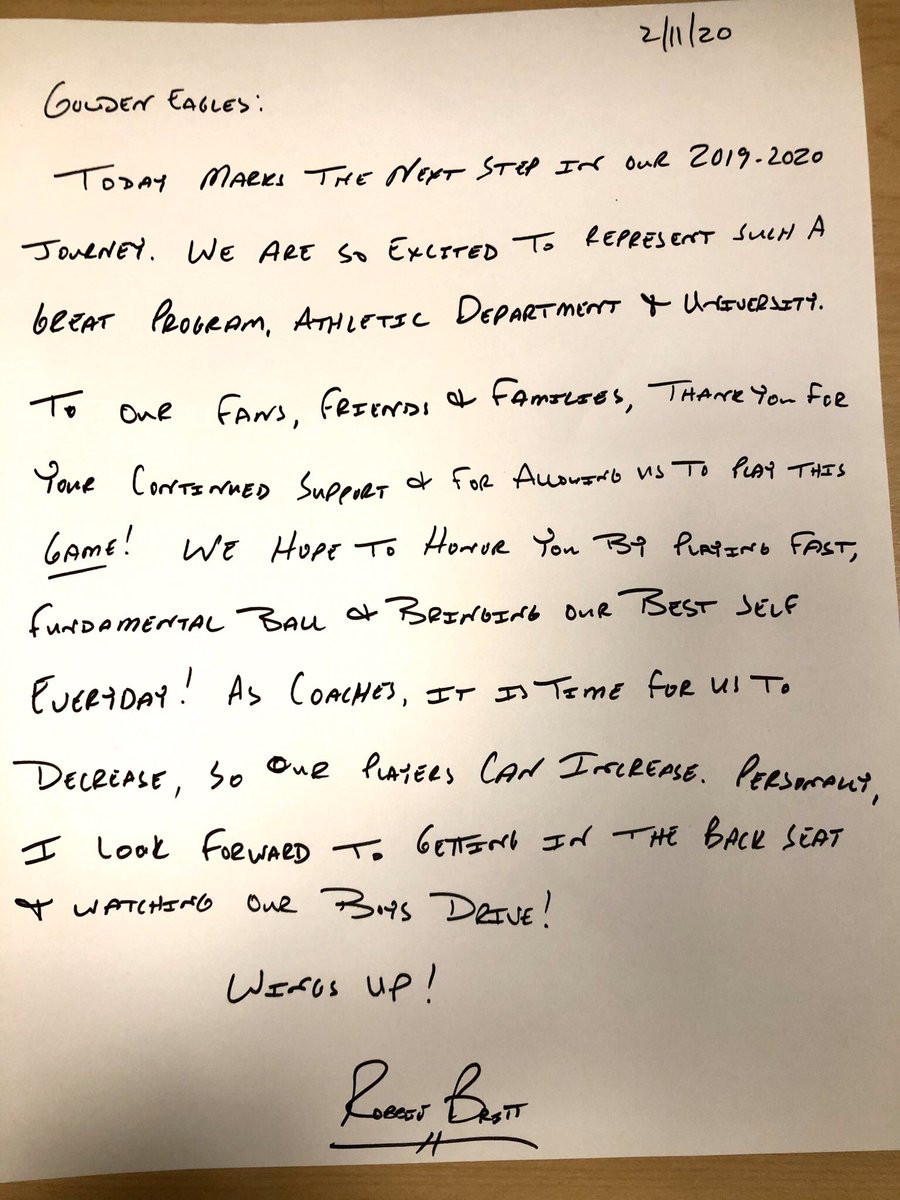 2/11/20
GOLDEN EAGLES:
TODAY MARKS THE NEXT STEP IN OUR 2019-2020
JOURNEY. WE ARE SO EXCITED TO REPRESENT SUCH A
GREAT PROGRAM, ATHLETIC DEPARTMENT & UNIVERSITY.
TO OUR FANS, FRIENDS & FAMILIES, THANK YOU FOR
YOUR CONTINUED SUPPORT & FOR ALLOWING US TO PLAY THIS
GAME! WE HOPE TO HONOR YOU BY PLAYING FAST,
FUNDAMENTAL BALL & BRINGING OUR BEST SELF
EVERYDAY! AS COACHES, IT IS TIME FOR US TO
DECREASE, SO OUR PLAYERS CAN INCREASE. PERSONALLY,
I LOOK FORWARD TO GETTING IN THE BACK SEAT
& WATCHING OUR BOYS DRIVE!
WINGS UP!
ROBBIE BRITT